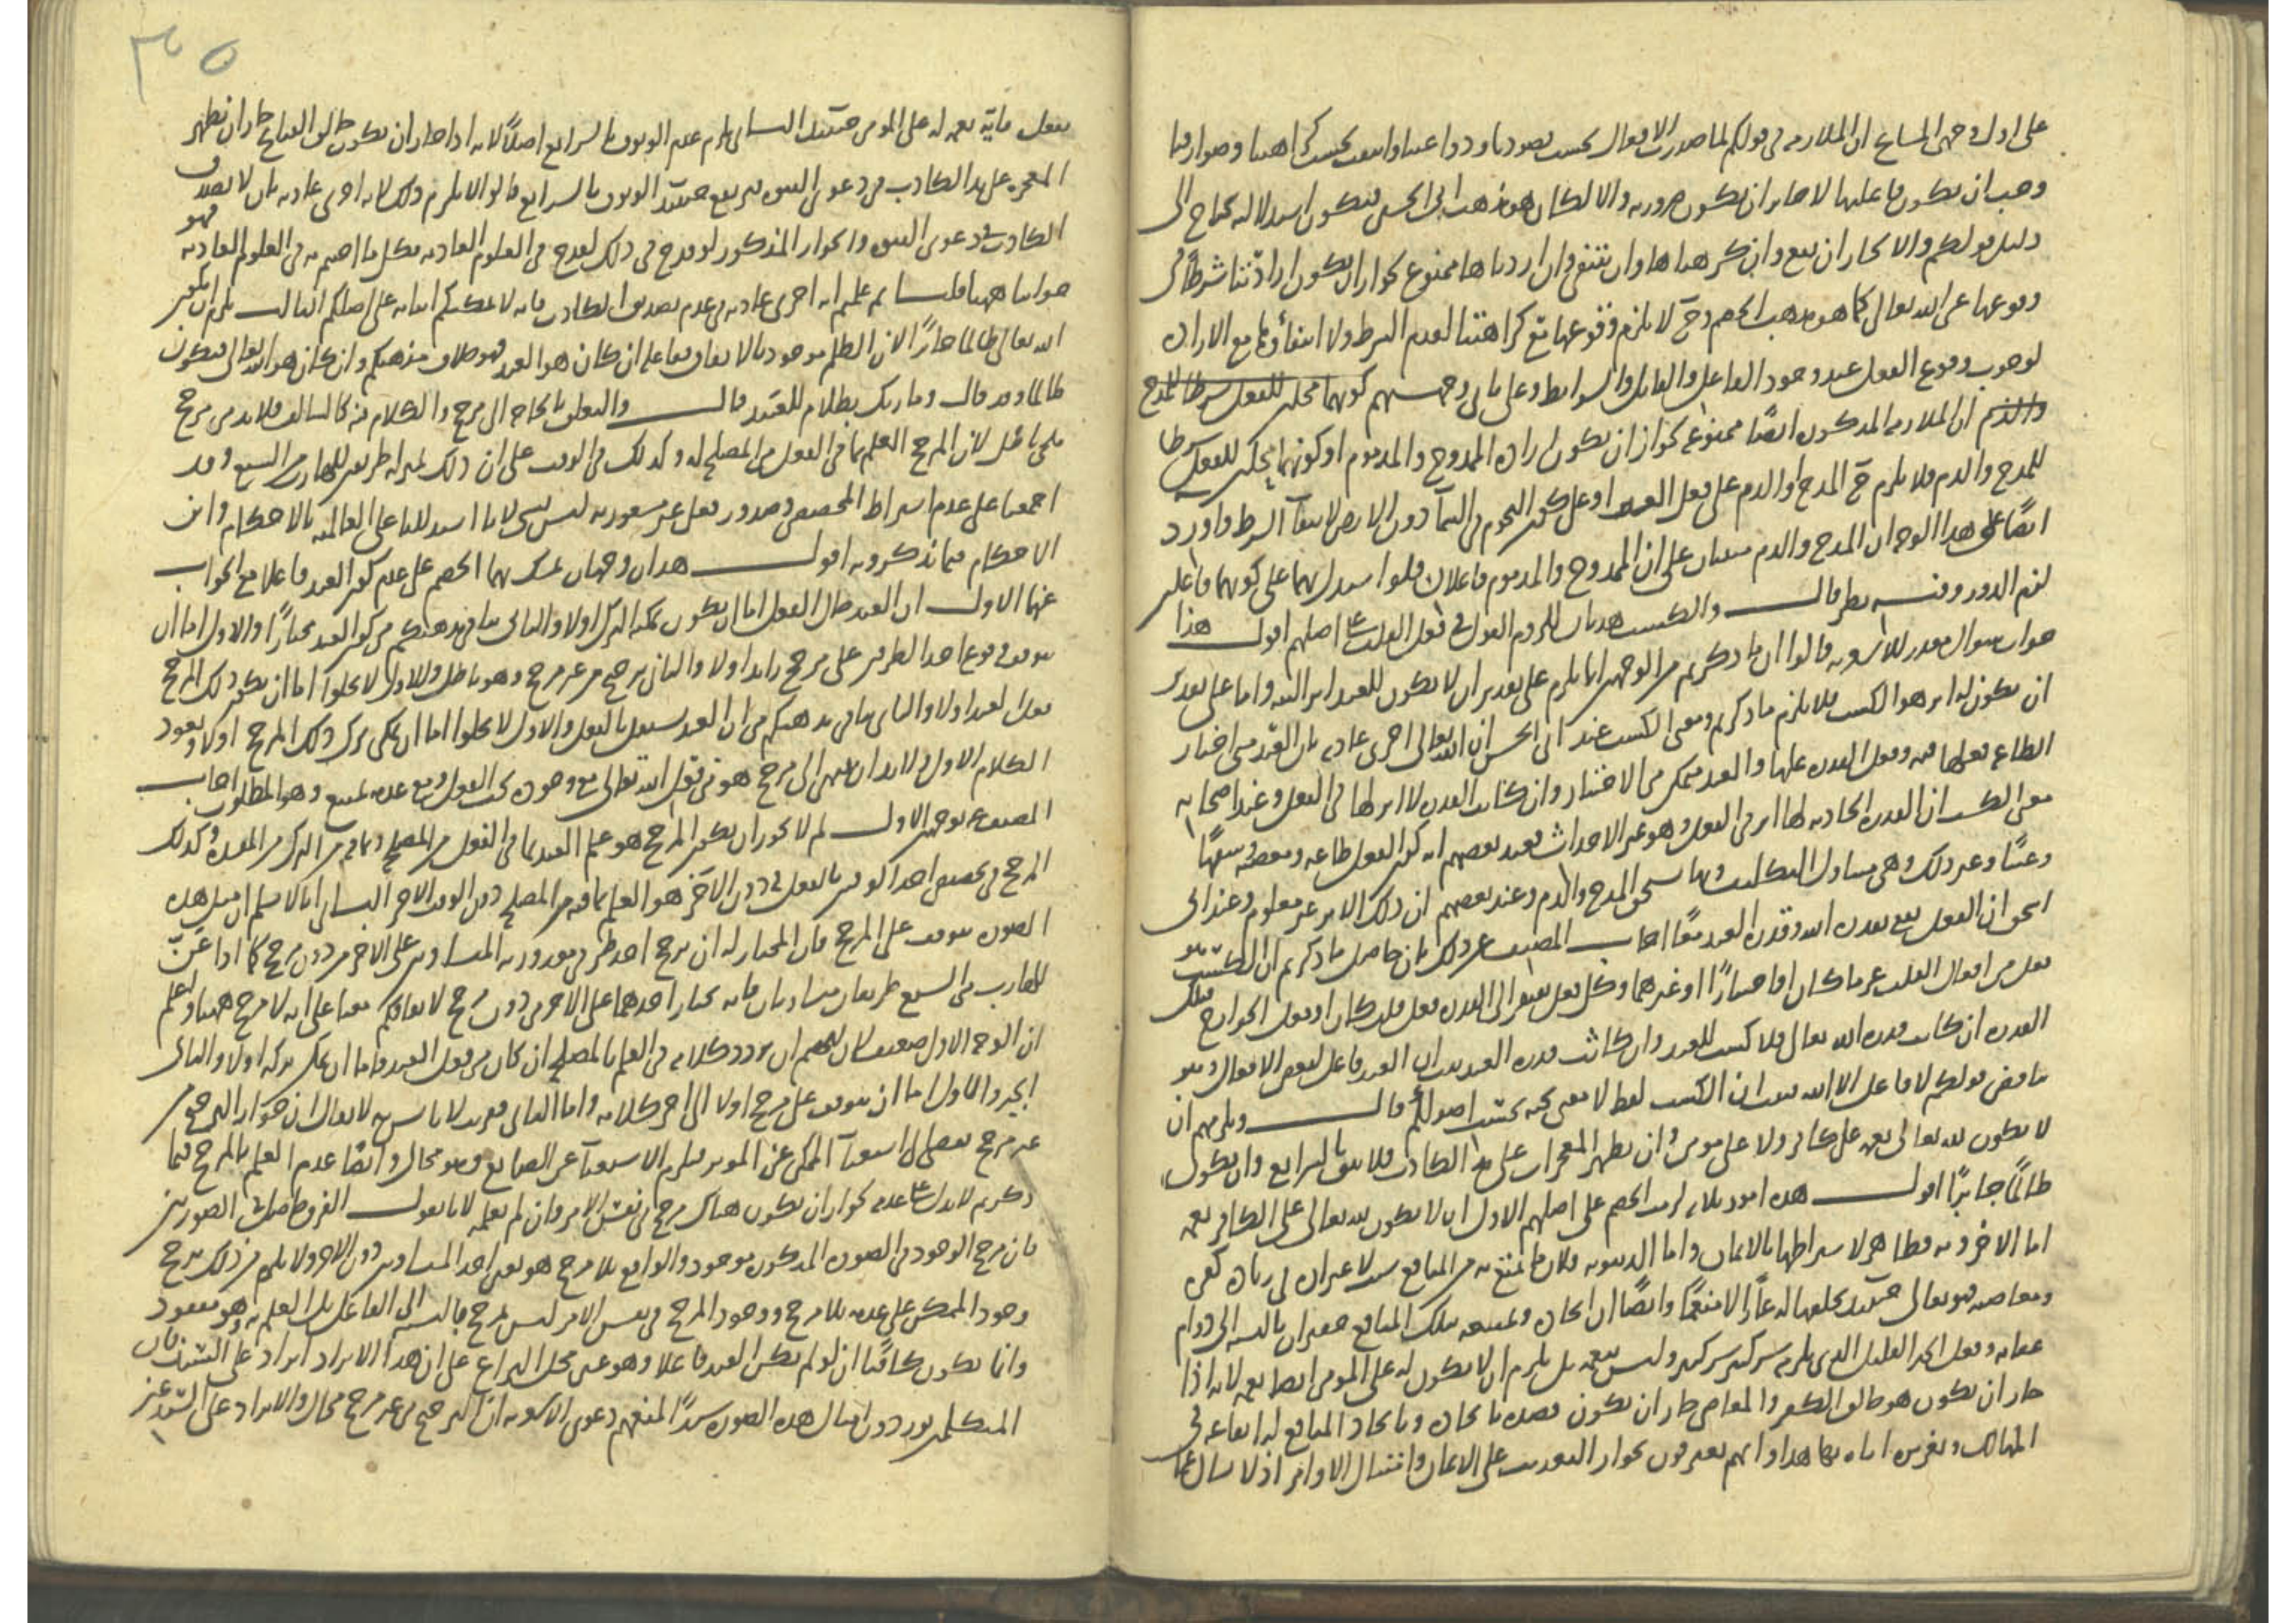 على اول وجهى المشايخ ان الملازمة فى قولكم لما صدرت الافعال بحسب قصودنا ودواعينا وانتفت بحسب كراهتنا وصوارفنا
وجب ان نكون فاعليها لا جائز ان تكون ضرورية والا لكان هو مذهب ابى الحسين فتكون استدلالية تحتاج الى
دليل قولكم والا لجاز ان تقع وان كرهناها وان تنتفى وان اردناها ممنوع لجواز ان يكون ارادتنا شرطا فى
وقوعها عن الله تعالى كما هو مذهب الخصم وح لا يلزم وقوعها مع كراهتنا لعدم الشرط ولا انتفاؤها مع الارادة
لوجوب وقوع الفعل عند وجود الفاعل والقابل والشرائط وعلى ثانى وجهيهم كونهما محلين للفعل شرطا للمدح
والذم ان الملازمة المذكورة ايضا ممنوعة لجواز ان يكون ارادة الممدوح والمذموم او كونهما محلين للفعل شرطا
للمدح والذم فلا يلزم ح المدح او الذم على فعل الغير او على كون النجوم فى السمآ دون الارض لانتفآ الشرط واورد
ايضا على هذا الوجه ان المدح والذم مبنيان على ان الممدوح والمذموم فاعلان فلو استدل بهما على كونهما فاعلين
لزم الدور وفيه نظر قال والكسب هذيان للزوم القول فى فعل القلب على اصلهم اقول هذا
جواب سوال مقدر للاشعرية قالوا ان ما ذكرتم من الوجهين انما يلزم على تقدير ان لا يكون للعبد اثر البتة واما على تقدير
ان يكون له اثر هو الكسب فلا يلزم ما ذكرتم ومعنى الكسب عند ابى الحسن ان الله تعالى اجرى عادته بان العبد متى اختار
الطاعة فعلها فيه وفعل القدرة عليها والعبد متمكن من الاختيار وان كانت القدرة لا اثر لها فى الفعل وعند اصحابه
معنى الكسب ان القدرة الحادثة لها اثر فى الفعل وهو غير الاحداث فعند بعضهم انه كون الفعل طاعة ومعصية وسفها
وعبثا وغير ذلك وهى متناول التكليف وبها يستحق المدح والذم وعند بعضهم ان ذلك الاثر غير معلوم وعند ابى
اسحق ان الفعل يقع بقدرة الله وقدرة العبد معا اجاب المصنف عن ذلك بان حاصل ما ذكرتم ان الكسب هو
فعل من افعال القلب عزما كان او اختيارا او غيرهما وكل فعل يفتقر الى القدرة فعل قلب كان او فعل الجوارح فتلك
القدرة ان كانت قدرة الله تعالى فلا كسب للعبد وان كانت قدرة العبد ثبت ان العبد فاعل لبعض الافعال وهو
يناقض قولكم لا فاعل الا الله فثبت ان الكسب لفظ لا معنى تحته بحسب اصولكم قال ويلزمهم ان
لا يكون لله تعالى نعمة على كافر ولا على مومن وان يظهر المعجزات على يد الكاذب فلا يبقى بالشرايع وان يكون
ظالما جايرا اقول هذه امور ثلاثة لزمت الخصم على اصلهم الاول ان لا يكون لله تعالى على الكافر نعمة
اما الاخروية فظاهر لاشتراطها بالايمان واما الدنيوية فلان ما يتمتع به من المنافع استدلاعين ان فى زمان كفره
ومعاصيه فهو تعالى حينئذ يجعلها له عذابا لا منتفعا وايضا ان ايجاده وتمتيعه بتلك المنافع حقيران بالنسبة الى دوام
عقابه وفعل الخير القليل الذى يلزمه شر كثير شر كثير وليس بنعمة بل يلزم ان لا يكون له على المومن ايضا نعمة لانه اذا
جاز ان يكون هو خالق الكفر والمعاصى جاز ان يكون قصده بايجاده وبايجاد المنافع له ايقاعه فى
المهالك وتغريره اياه بها هذا وانهم يعترفون بجواز التعذيب على الايمان وامتثال الاوامر اذ لا يسال عما
٣٥
يفعل فاية نعمة له على المومن حينئذ الثانى يلزم عدم الوثوق بالشرايع اصلا لانه اذا جاز ان يكون خالق القبايح جاز ان يظهر
المعجزة على يد الكاذب من دعوى النبوة فيرتفع حينئذ الوثوق بالشرايع قالوا لا يلزم ذلك لانه اجرى عادته بان لا يصدق
الكاذب فى دعوى النبوة والجواز المذكور لو قدح فى ذلك لقدح فى العلوم العادية فكل ما اجبتم به فى العلوم العادية فهو
جوابنا ههنا قلنا بم علمتم انه اجرى عادته فى عدم تصديق الكاذب فانه لا يمكنكم اثباته على اصلكم الثالث يلزم ان يكون
الله تعالى ظالما جائرا لان الظلم موجود بالاتفاق فاعله ان كان هو العبد فهو خلاف مذهبكم وان كان هو الله تعالى فيكون
ظالما وقد قال وما ربك بظلام للعبيد قال والتعلق بالحاجة الى مرجح والكلام فيه كالسالف فلا بد من مرجح
ملجئ باطل لان المرجح العلم بما فى الفعل من المصلحة له وكذلك فى الوقت على ان ذلك بمنزلة طريقين للهارب من السبع وقد
اجمعنا على عدم اشتراط المخصص وصدور فعل غير مشعور به ليس بشى لانا استدللنا على العالمية بالاحكام واين
الاحكام فيما تذكرونه اقول هذان وجهان تمسك بهما الخصم على عدم كون العبد فاعلا مع الجواب
عنهما الاول ان العبد حال الفعل اما ان يكون يمكنه الترك اولا والثانى ينافى مذهبكم من كون العبد مختارا والاول اما ان
يتوقف وقوع احد الطرفين على مرجح زايد اولا والثانى ترجيح من غير مرجح وهو باطل والاول لا يخلوا اما ان يكون ذلك المرجح
بفعل العبد اولا والثانى ينافى مذهبكم من ان العبد مستقل بالفعل والاول لا يخلوا اما ان يمكن ترك ذلك المرجح اولا ويعود
الكلام الاول ولا بد ان ينتهى الى مرجح هو من فعل الله تعالى مع وجوده يجب الفعل ومع عدمه يمتنع وهو المطلوب اجاب
المصنف بوجهين الاول لم لا يجوز ان يكون المرجح هو علم العبد بما فى الفعل من المصلحة وبما فى الترك من المفسدة وكذلك
المرجح فى تخصيص احد الوقتين بالفعل فيه دون الآخر هو العلم بما فيه من المصلحة دون الوقت الاخر الثانى انا لا نسلم ان مثل هذه
الصورة يتوقف على المرجح فان المختار له ان يرجح احد طرفى مقدوريه المتساويين على الاخر من دون مرجح كما اذا عنّ
للهارب من السبع طريقان متساويان فانه يختار احدهما على الاخر من دون مرجح لاتفاقكم معنا على انه لا مرجح ههنا واعلم
ان الوجه الاول ضعيف فان للخصم ان يردد كلامه فى العلم بالمصلحة ان كان من فعل العبد فاما ان يمكن تركه اولا والثانى
الجبر والاول اما ان يتوقف على مرجح اولا الى اخر كلامه واما الثانى فقريب لا باس به لا يقال ان جواز الترجيح من
غير مرجح يفضى الى استغنآ الممكن عن الموثر فيلزم الاستغنآ عن الصانع وهو محال وايضا عدم العلم بالمرجح فيما
ذكرتم لا يدل على عدمه لجواز ان يكون هناك مرجح فى نفس الامر وان لم نعلمه لانا نقول الفرق حاصل بين الصورتين
فان مرجح الوجود فى الصورة المذكورة موجود والواقع بلا مرجح هو تعين احد المتساويين دون الاخر ولا يلزم من ذلك ترجح
وجود الممكن على عدمه بلا مرجح ووجود المرجح فى نفس الامر ليس بمرجح بالنسبة الى الفاعل بل العلم به وهو مفقود
وانما يكون كافيا ان لو لم يكن العبد فاعلا وهو عين محل النزاع على ان هذا الايراد ايراد على السند فان
المتكلمين يوردون امثال هذه الصورة سندا لمنعهم دعوى الاشعرية ان الترجيح من غير مرجح محال والايراد على السند غير